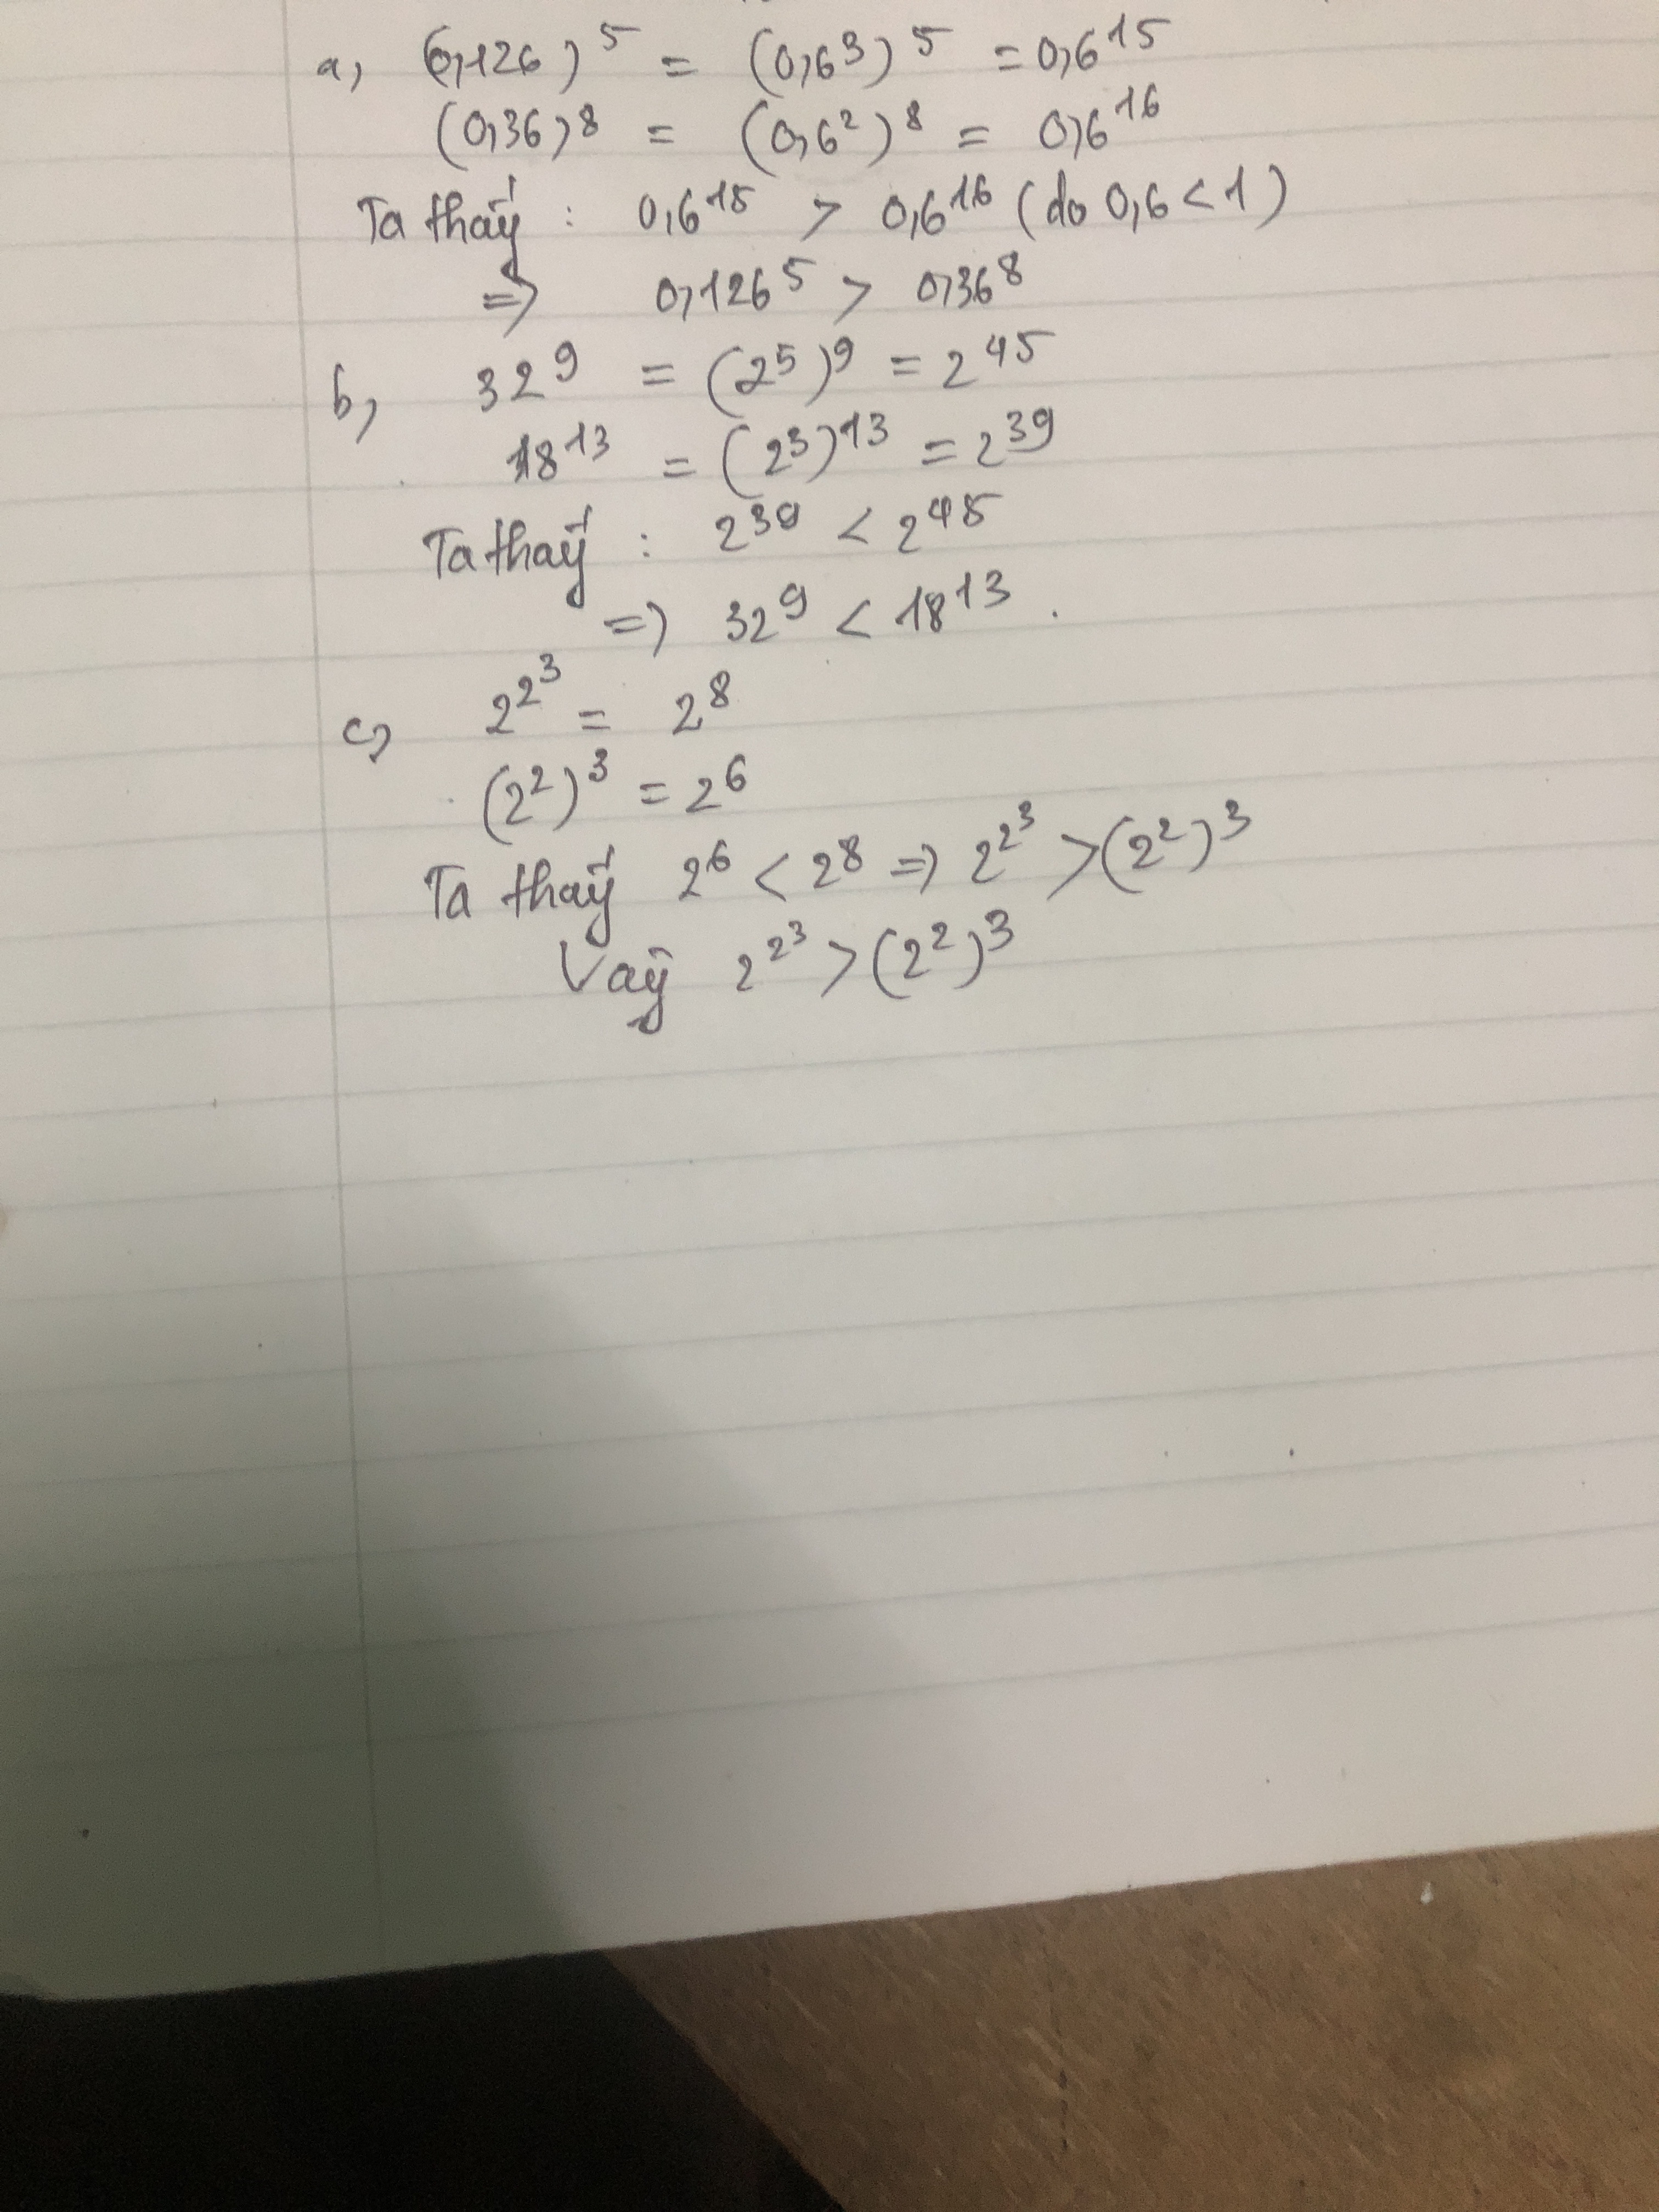 a, (0,126)⁵ = (0,6³)⁵ = 0,6¹⁵
(0,36)⁸ = (0,6²)⁸ = 0,6¹⁶
Ta thấy : 0,6¹⁵ > 0,6¹⁶ (do 0,6 < 1)
=> 0,126⁵ > 0,36⁸
b, 32⁹ = (2⁵)⁹ = 2⁴⁵
18¹³ = (2³)¹³ = 2³⁹
Ta thấy : 2³⁹ < 2⁴⁵
=> 32⁹ < 18¹³.
c, 2^2^3 = 2⁸
(2²)³ = 2⁶
Ta thấy 2⁶ < 2⁸ => 2^2^3 > (2²)³
Vậy 2^2^3 > (2²)³